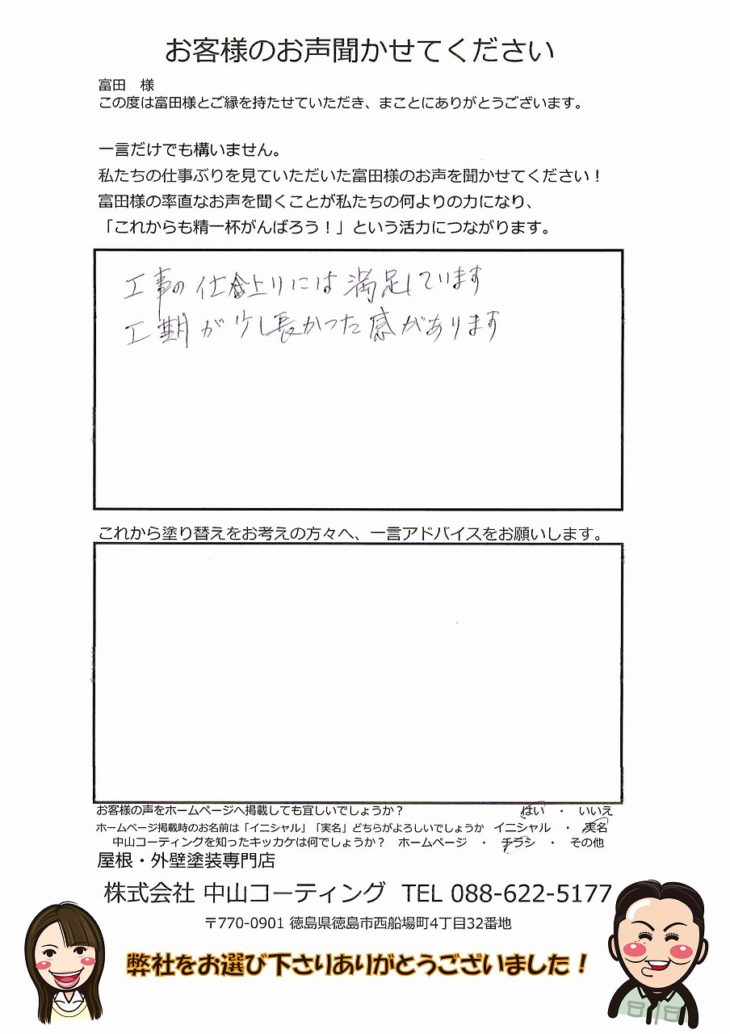 お客様のお声聞かせてください
富田　様
この度は富田様とご縁を持たせていただき、まことにありがとうございます。
一言だけでも構いません。
私たちの仕事ぶりを見ていただいた富田様のお声を聞かせてください！
富田様の率直なお声を聞くことが私たちの何よりの力になり、
「これからも精一杯がんばろう！」という活力につながります。
工事の仕上りには満足しています
工期が少し長かった感があります
これから塗り替えをお考えの方々へ、一言アドバイスをお願いします。
お客様の声をホームページへ掲載しても宜しいでしょうか？　はい ・ いいえ
ホームページ掲載時のお名前は「イニシャル」「実名」どちらがよろしいでしょうか　イニシャル ・ 実名
中山コーティングを知ったキッカケは何でしょうか？　ホームページ ・ チラシ ・ その他
屋根・外壁塗装専門店
株式会社 中山コーティング　TEL 088-622-5177
〒770-0901 徳島県徳島市西船場町4丁目32番地
弊社をお選び下さりありがとうございました！